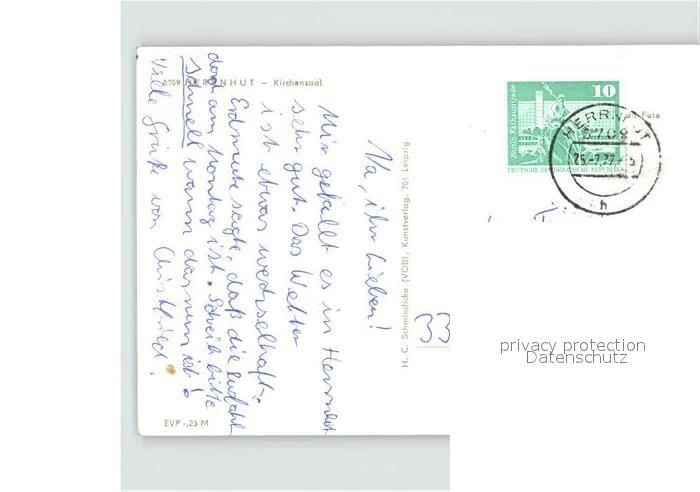 8709 HERRNHUT – Kirchensaal
Na, ihr Lieben!
Mir gefällt es in Herrnhut
sehr gut. Das Wetter
ist etwas wechselhaft.
Erdmute sagte, daß die
doch am Montag ist. Schreib bitte
schnell wann das nun ist!
Viele Grüße von Christfried.
EVP -,25 M
H. C. Schmiedicke (VOB), Kunstverlag, 701 Leipzig
10
Berlin, Rathausstraße
DEUTSCHE DEMOKRATISCHE REPUBLIK
HERRNHUT
8709
h
Foto
33
privacy protection
Datenschutz